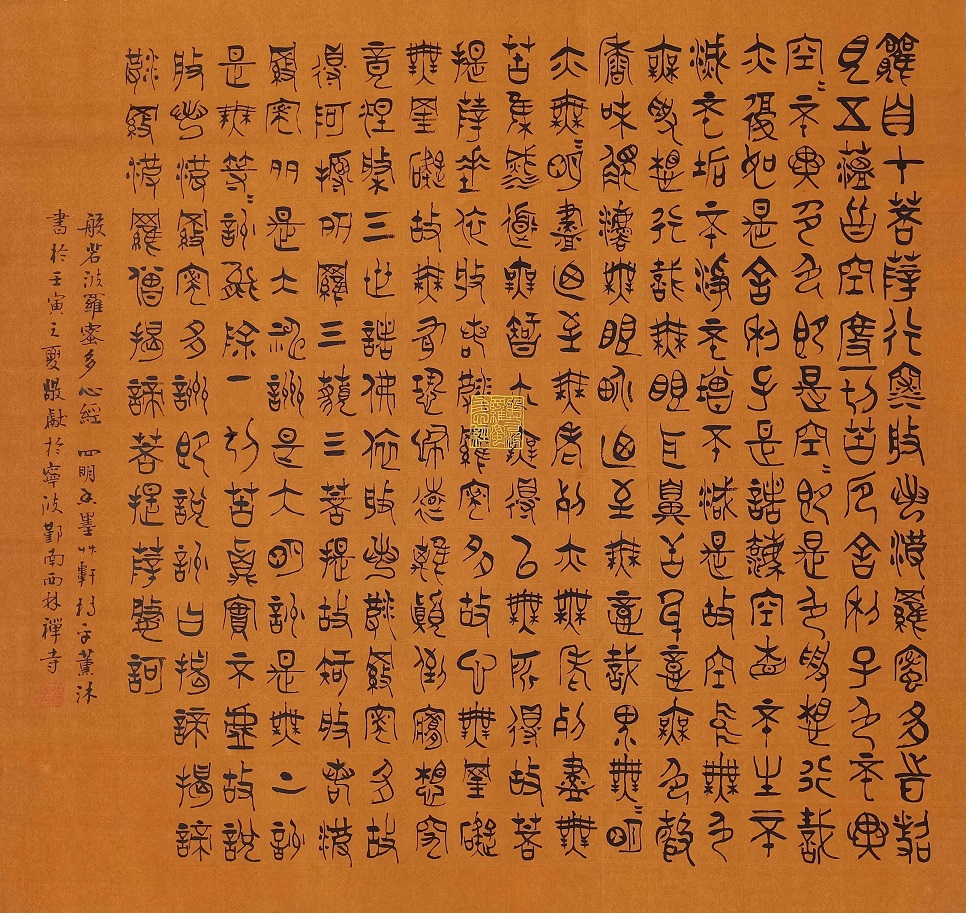 觀自在菩薩行深般若波羅蜜多時照
見五蘊皆空度一切苦厄舍利子色不異
空〻不異色色即是空〻即是色受想行識
亦復如是舍利子是諸法空相不生不
滅不垢不淨不增不減是故空中無色
無受想行識無眼耳鼻舌身意無色聲
香味觸法無眼界乃至無意識界無〻明
亦無〻明盡乃至無老死亦無老死盡無
苦集滅道無智亦無得以無所得故菩
提薩埵依般若波羅蜜多故心無罣礙
無罣礙故無有恐怖遠離顛倒夢想究
竟涅槃三世諸佛依般若波羅蜜多故
得阿耨多羅三藐三菩提故知般若波
羅蜜多是大神咒是大明咒是無上咒
是無等〻咒能除一切苦真實不虛故說
般若波羅蜜多咒即說咒曰揭諦揭諦
波羅波羅僧揭諦菩提薩婆訶
般若波羅蜜多心經 四明墨艸軒子薰沐
書於壬寅之夏敬獻於寧波鄞南西林禪寺